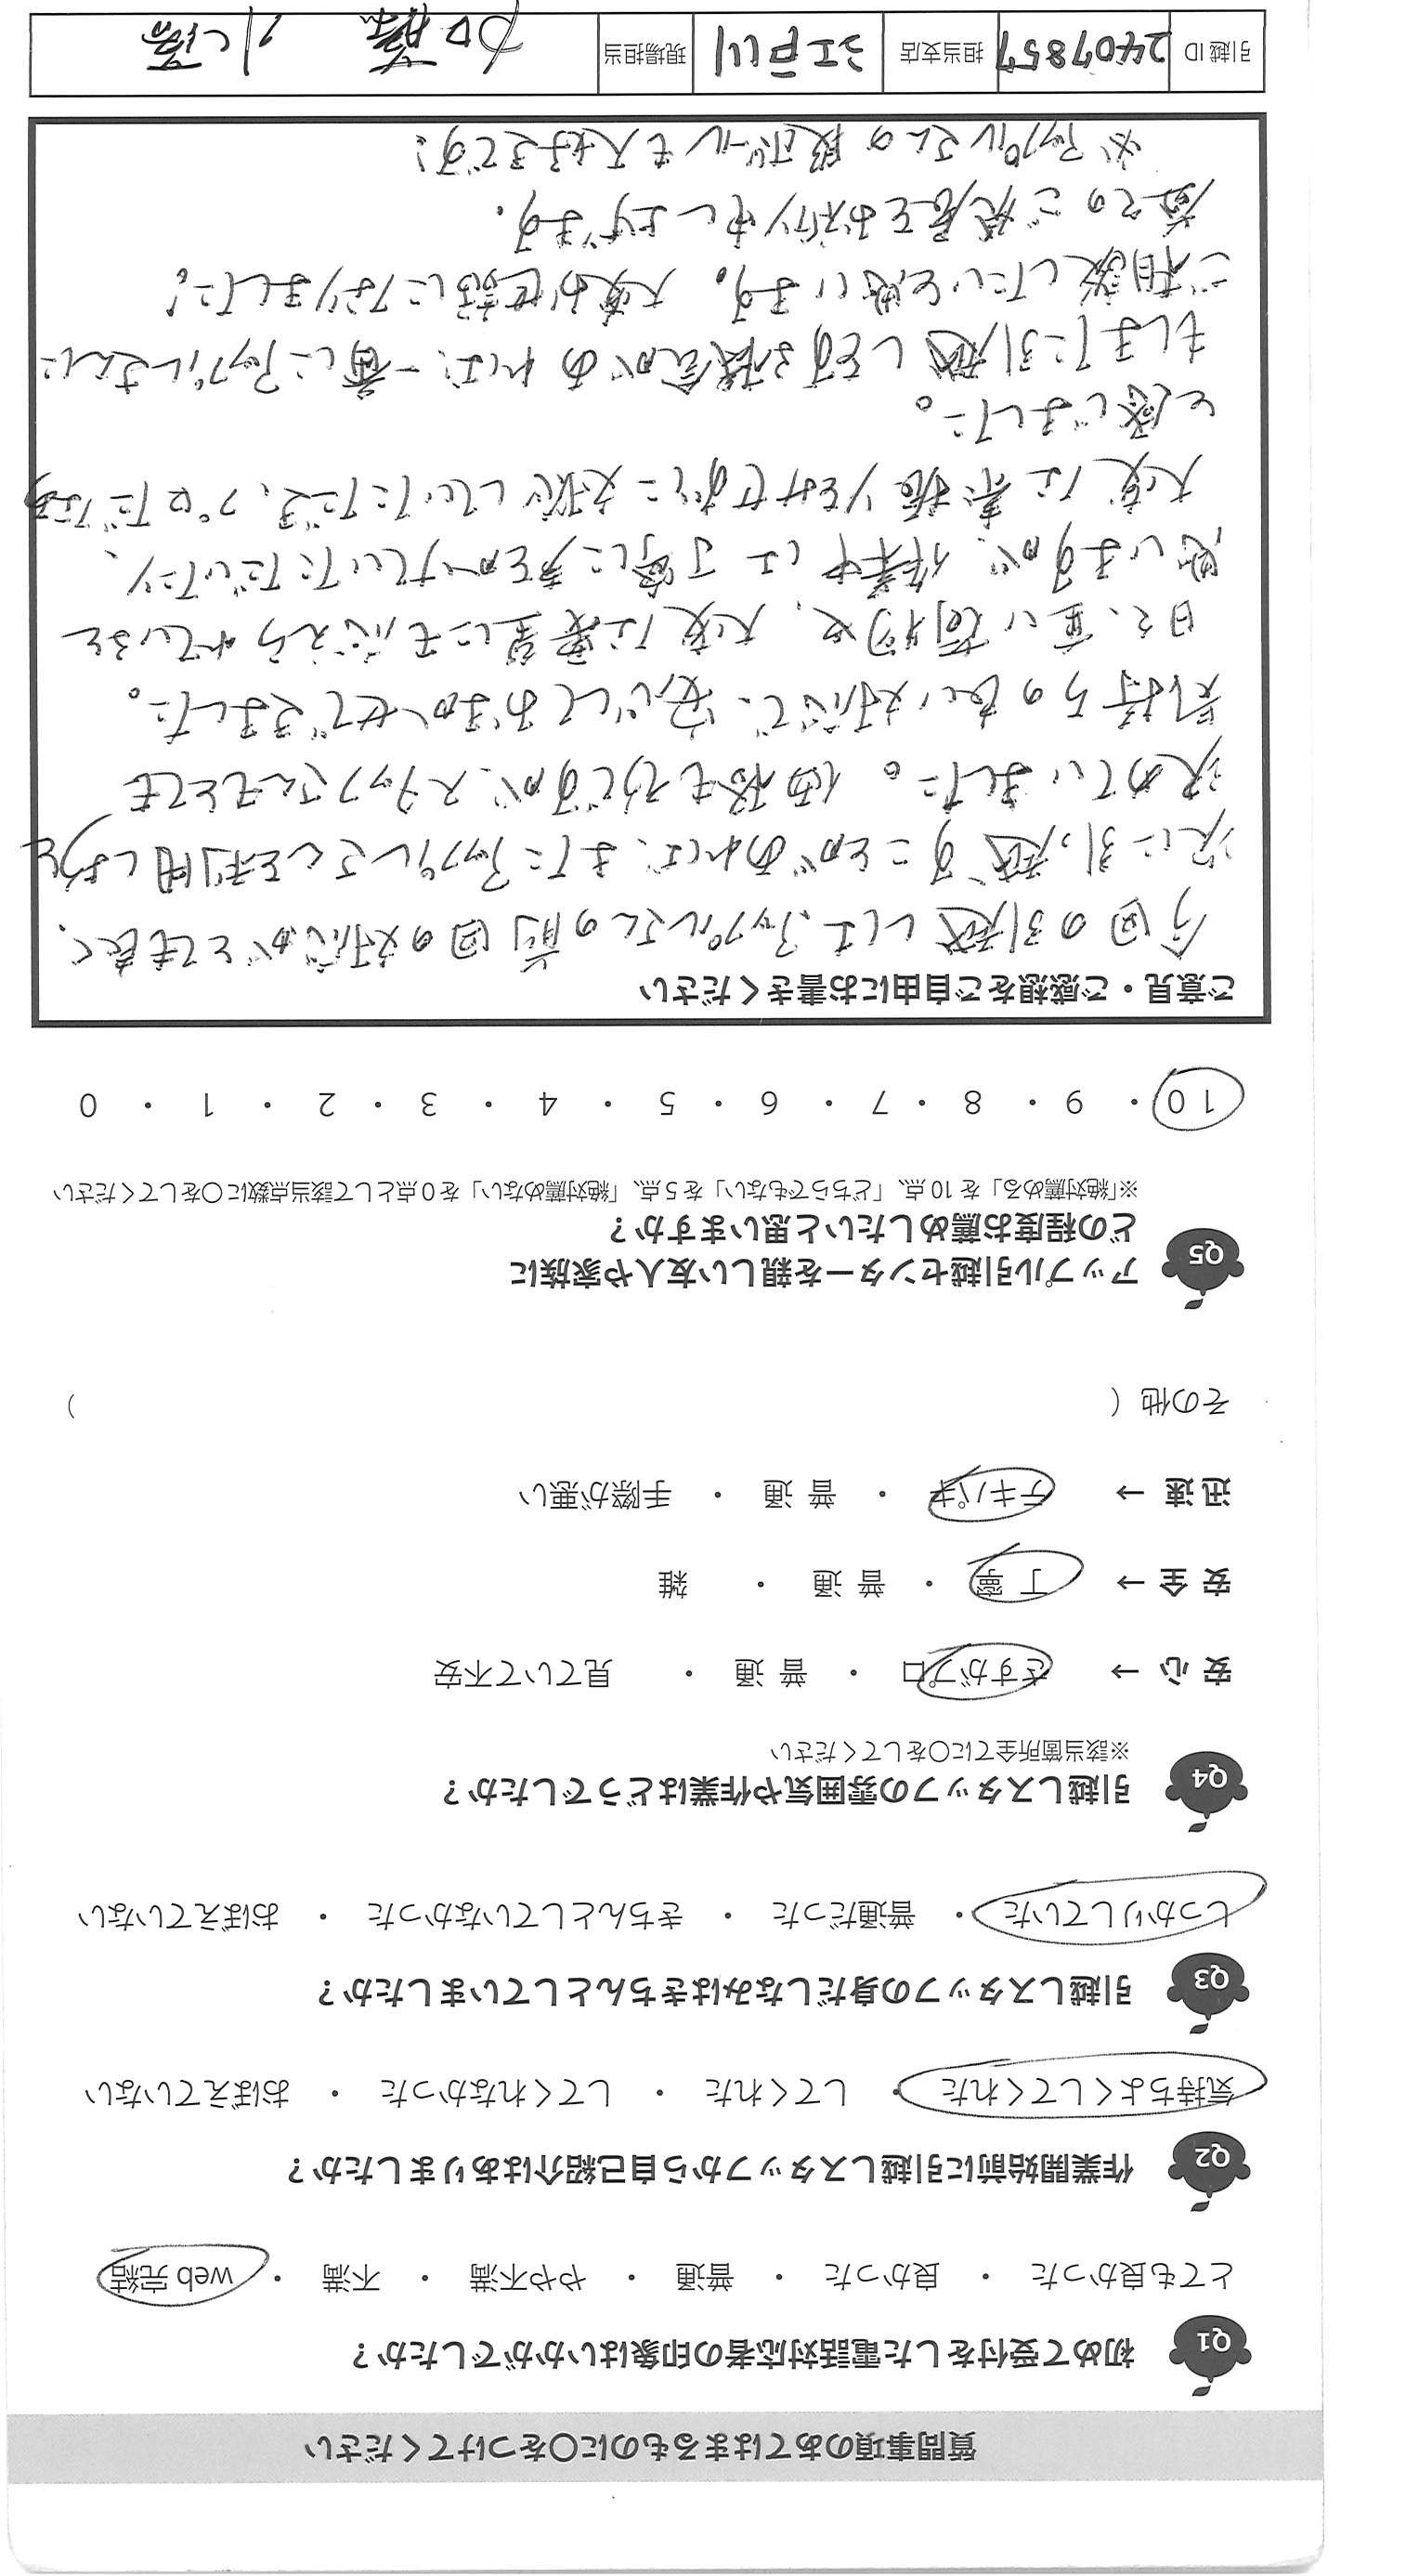 質問事項のあてはまるものに〇をつけてください
Q1 初めて受付をした電話対応者の印象はいかがでしたか？
とても良かった ・ 良かった ・ 普通 ・ やや不満 ・ 不満 ・ web 完結
Q2 作業開始前に引越しスタッフから自己紹介はありましたか？
気持ちよくしてくれた ・ してくれた ・ してくれなかった ・ おぼえていない
Q3 引越しスタッフの身だしなみはきちんとしていましたか？
しっかりしていた ・ 普通だった ・ きちんとしていなかった ・ おぼえていない
Q4 引越しスタッフの雰囲気や作業はどうでしたか？
※該当箇所全てに〇をしてください
安 心 → さすがプロ ・ 普 通 ・ 見ていて不安
安 全 → 丁 寧 ・ 普 通 ・ 雑
迅 速 → テキパキ ・ 普 通 ・ 手際が悪い
その他（ ）
Q5 アップル引越センターを親しい友人や家族に
どの程度お薦めしたいと思いますか？
※「絶対薦める」を 10 点、「どちらでもない」を 5 点、「絶対薦めない」を 0 点として該当点数に〇をしてください
10 ・ 9 ・ 8 ・ 7 ・ 6 ・ 5 ・ 4 ・ 3 ・ 2 ・ 1 ・ 0
ご意見・ご感想をご自由にお書きください
今回の引越しは、アップルさんの前回の対応がとても良く、
次に引っ越すことがあれば、またアップルさんを利用しようと
決めていました。価格もそうですが、スタッフさんもとても
気持ちの良い対応で、安心しておまかせできました。
日々、重い荷物や、大変な要望にも応えられていると
思いますが、作業中は丁寧に声をかけていただいたり、
大変な素振りをみせずに対応していただき、プロだなあ
と感じました。
もしまた引越しをする機会があれば、一番にアップルさんに
ご相談したいと思います。大変お世話になりました！
益々のご発展をお祈り申し上げます。
※アップルさんの段ボールも大好きです！
引越 ID 2407857 担当支店 江戸川 現場担当 加藤